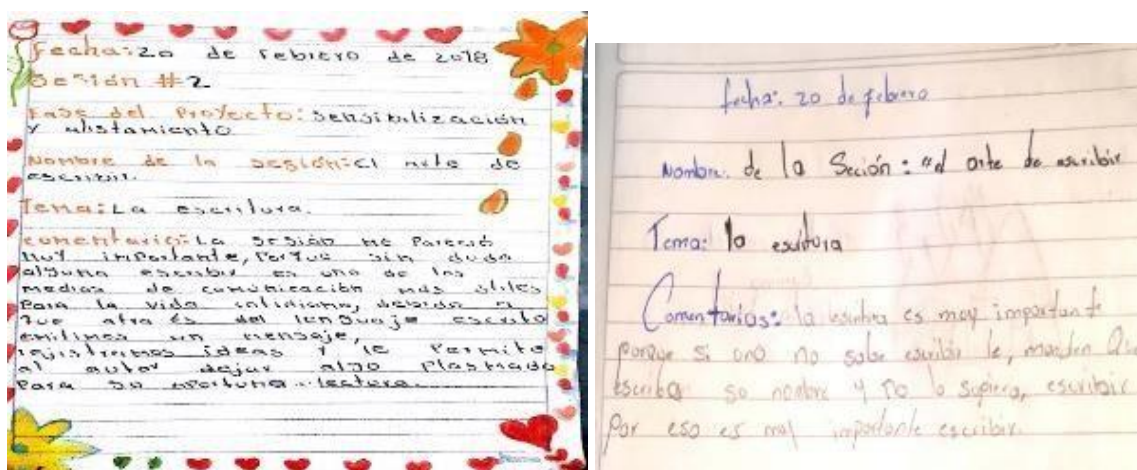 Fecha: 20 de Febrero de 2018
Sesión #2
Fase del Proyecto: Sensibilización
y alistamiento
Nombre de la sesión: El arte de
escribir.
Tema: La escritura.
comentario: La sesión me Pareció
muy importante, Porque sin duda
alguna escribir es uno de los
medios de comunicación más útiles
Para la vida cotidiana, debido a
que atra és del lenguaje escrito
emitimos un mensaje,
rejistramos ideas y le Permite
al autor dejar algo Plasmado
Para su oportuna lectura.
fecha: 20 de febrero
Nombre de la Seción: "el arte de escribir
Tema: la escritura
Comentarios: la escritura es muy importante
porque si uno no sabe escribir le, manden Que
escriba so nombre y no lo supiera, escribir
Por eso es muy importante escribir.